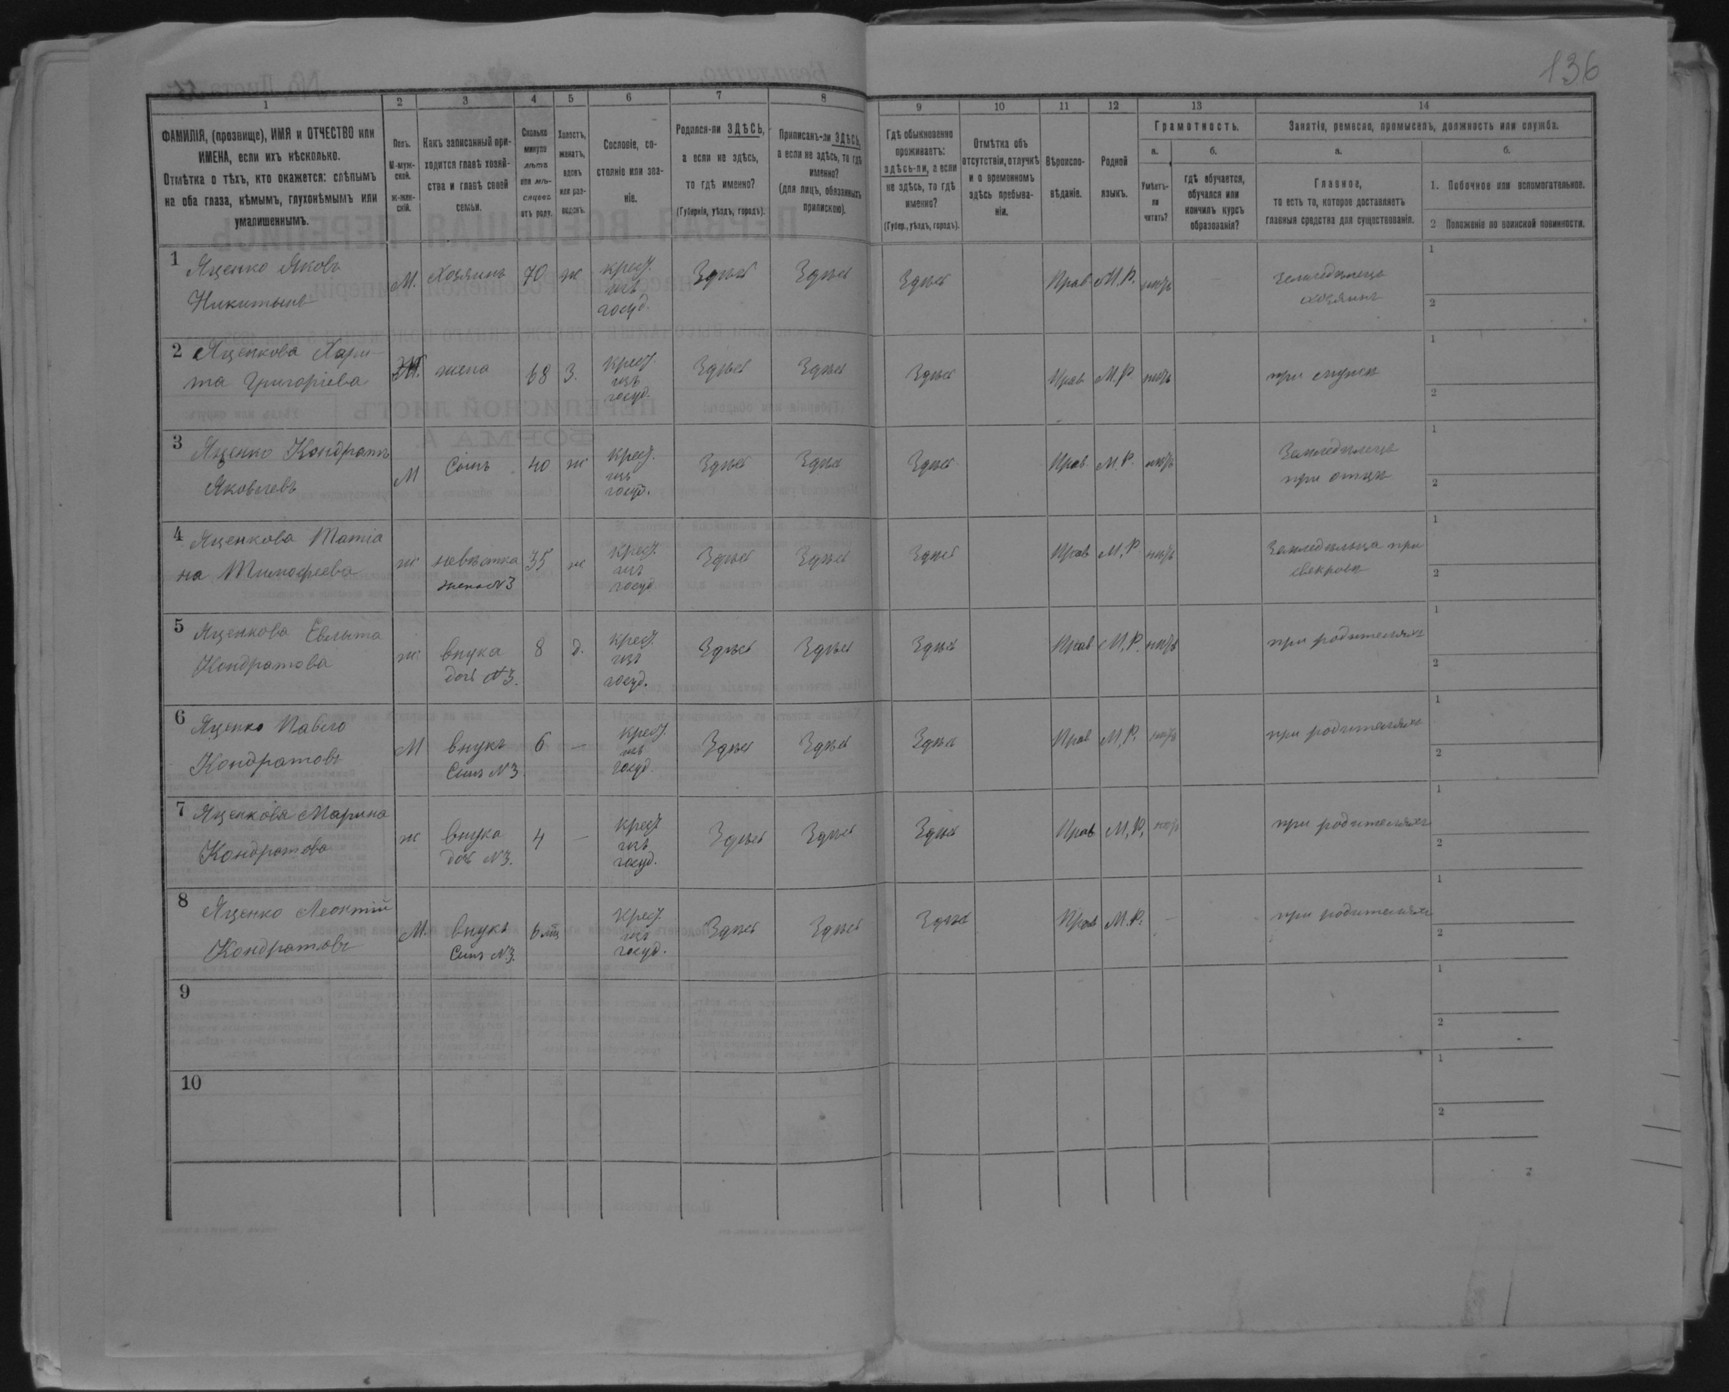 136
1
2
3
4
5
6
7
8
9
10
11
12
13
14
ФАМИЛІЯ, (прозвище), ИМЯ и ОТЧЕСТВО или
ИМЕНА, если ихъ нѣсколько.
Отмѣтка о тѣхъ, кто окажется: слѣпымъ
на оба глаза, нѣмымъ, глухонѣмымъ или
умалишеннымъ.
Полъ.
М-муж-
ской.
Ж-жен-
скій.
Какъ записанный при-
ходится главѣ хозяй-
ства и главѣ своей
семьи.
Сколько
минуло
лѣтъ
или мѣ-
сяцевъ
отъ роду.
Холостъ,
женатъ,
вдовъ
или раз-
веденъ.
Сословіе, со-
стояніе или зва-
ніе.
Родился-ли ЗДѢСЬ,
а если не здѣсь,
то гдѣ именно?
(Губернія, уѣздъ, городъ).
Приписанъ-ли ЗДѢСЬ,
а если не здѣсь, то гдѣ
именно?
(для лицъ, обязанныхъ
припискою).
Гдѣ обыкновенно
проживаетъ:
здѣсь-ли, а если
не здѣсь, то гдѣ
именно?
(Губер., уѣздъ, городъ).
Отмѣтка объ
отсутствіи, отлучкѣ
и о временномъ
здѣсь пребыва-
ніи.
Вѣроиспо-
вѣданіе.
Родной
языкъ.
Грамотность.
а.
Умѣетъ-
ли
читать?
б.
гдѣ обучается,
обучался или
кончилъ курсъ
образованія?
Занятіе, ремесло, промыселъ, должность или служба.
а.
Главное,
то есть то, которое доставляетъ
главныя средства для существованія.
б.
1. Побочное или вспомогательное.
2 Положеніе по воинской повинности.
1 Яценко Яковъ
Никитинъ
М. Хозяинъ 70 ж крест. изъ госуд. Здѣсь Здѣсь Здѣсь Прав М.Р. нѣтъ
Земледѣлецъ
хозяинъ
2 Яценкова
Григоріева
Ж. жена 68 З. крест. изъ госуд. Здѣсь Здѣсь Здѣсь Прав М.Р. нѣтъ при мужѣ
3 Яценко Кондратъ
Яковлевъ
М Сынъ 40 ж крест. изъ госуд. Здѣсь Здѣсь Здѣсь Прав М.Р. нѣтъ
Земледѣлецъ
при отцѣ
4 Яценкова Татiа
на Тимофеева
ж невѣстка 35 ж крест. изъ госуд. Здѣсь Здѣсь Здѣсь Прав М.Р. нѣтъ
жена №3
при
5 Яценкова
Кондратова
ж внука 8 д. крест. изъ госуд. Здѣсь Здѣсь Здѣсь Прав М.Р. нѣтъ при родителяхъ
доч №3.
6 Яценко Павло
Кондратовъ
М внукъ 6 — крест. изъ госуд. Здѣсь Здѣсь Здѣсь Прав М.Р. нѣтъ при родителяхъ
Сынъ №3
7 Яценкова Марина
Кондратова
ж внука 4 — крест. изъ госуд. Здѣсь Здѣсь Здѣсь Прав М.Р. нѣтъ при родителяхъ
доч №3.
8 Яценко Леонтій
Кондратовъ
М. внукъ 6 мѣс крест. изъ госуд. Здѣсь Здѣсь Здѣсь Прав М.Р. - при родителяхъ
Сынъ №3.
9
10